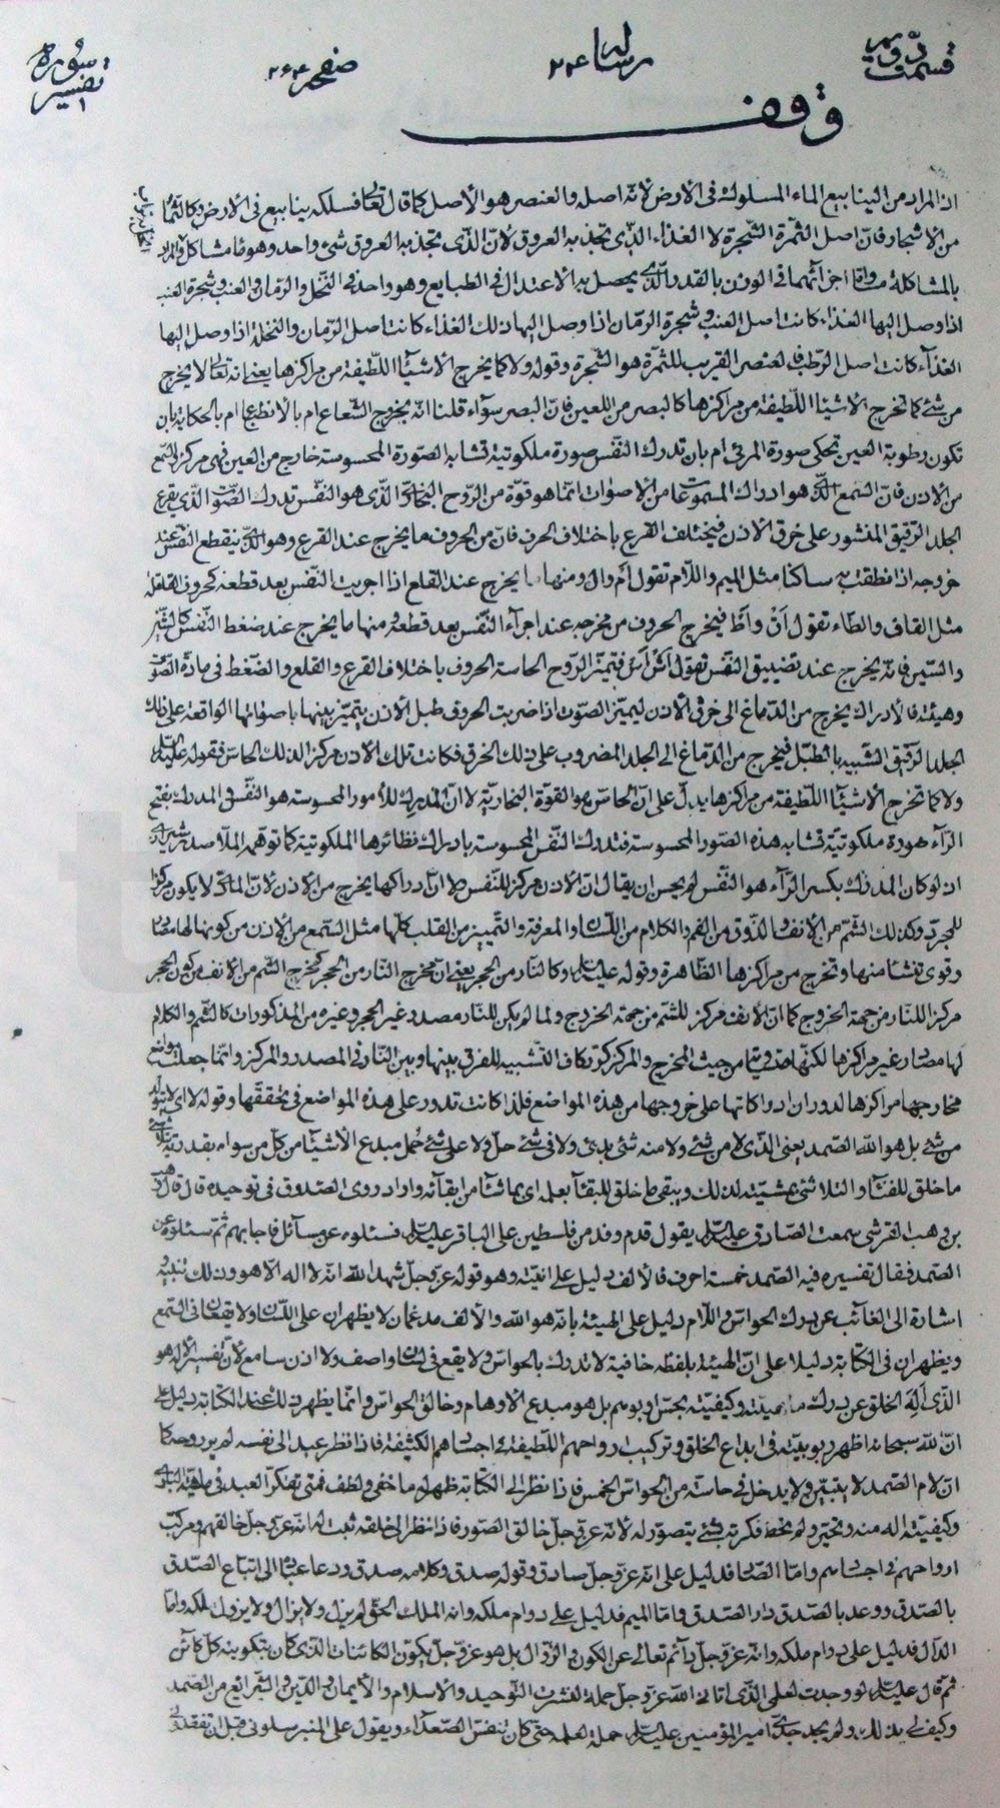 قسمت دویم
رساله ۲۴
صفحه ۲۶۴
سوره تفسیر
وقف
اذ المراد من الينابيع الماء المسلوك فى الارض لانه اصله والعنصر هو الاصل كما قال تعالى فسلكه ينابيع فى الارض وكالثمار
من الاشجار فان اصل الثمرة الشجرة لا الغذاء الذى تجذبه العروق لان الذى تجذبه العروق شىء واحد وهو ما شاكل والمراد
بالمشاكلة مساواة اجزائهما فى الوزن بالقدر الذى يحصل به الاعتدال فى الطبايع وهو واحد فى النخل والرمان والعنب وشجرة العنب
اذا وصل اليها الغذاء كانت اصل العنب وشجرة الرمان اذا وصل اليها ذلك الغذاء كانت اصل الرمان والنخلة اذا وصل اليها
الغذاء كانت اصل الرطب فالعنصر القريب للثمرة هو الشجرة وقوله ولا كما يخرج الاشياء اللطيفة من مراكزها يعنى انه تعالى لا يخرج
من شئ كما تخرج الاشياء اللطيفة من مراكزها كالبصر من العين فان البصر سواء قلنا انه بخروج الشعاع ام بالانطباع ام بالحكاية بان
تكون رطوبة العين تحكى صورة المرئى ام بان تدرك النفس صورة ملكوتية تشابه الصورة المحسوسة خارج من العين فهى مركز للسمع
من الاذن فان السمع الذى هو ادراك المسموعات من الاصوات انما هو قوة من الروح البخارى الذى هو النفس تدرك الصوت الذى يقرع
الجلد الرقيق المنشور على خرق الاذن فيختلف القرع باختلاف الحرف فان من الحروف ما يخرج عند القرع وهو الذى ينقطع النفس عند
خروجه اذا نطقت به ساكنا مثل الميم واللام تقول ام وال ومنها ما يخرج عند القلع اذا اجريت النفس بعد قطعه كحروف القلقلة
مثل القاف والطاء تقول اق واط فيخرج الحروف من مخرجه عند اجراء النفس بعد قطعه ومنها ما يخرج عند ضغط النفس كالشين
والسين فانه يخرج عند تضييق النفس تقول اش اس فتميز الروح الحاسة الحروف باختلاف القرع والقلع والضغط فى مادة الصوت
وهيئته فالادراك يخرج من الدماغ الى خرق الاذن ليميز الصوت اذا ضربت الحروف طبل الاذن يتميز بينها باصواتها الواقعة على ذلك
الجلد الرقيق الشبيه بالطبل فيخرج من الدماغ الى الجلد المضروب على ذلك الخرق فكانت تلك الاذن مركزا لذلك الحاس فقوله عليه السلم
ولا كما تخرج الاشياء اللطيفة من مراكزها يدل على ان الحاس هو القوة البخارية لا ان المدرك للامور المحسوسة هو النفس والمدرك بفتح
الراء هو صورة ملكوتية تشابه هذه الصور المحسوسة فتدرك النفس المحسوسة بادراك نظائرها الملكوتية كما توهمه الملا صدر الشيرازى
اذ لو كان المدرك بكسر الراء هو النفس لم يحسن ان يقال ان الاذن مركز للنفس ولا ان ادراكها يخرج من الاذن لان المادى لا يكون مركزا
للمجرد وكذلك الشم من الانف والذوق من الفم والكلام من اللسان والمعرفة والتمييز من القلب كلها مثل السمع من الاذن من كونها لها مصادر
وقوى تنشأ منها وتخرج من مراكزها الظاهرة وقوله عليه السلم وكالنار من الحجر يعنى ان مخرج النار من الحجر كمخرج الشم من الانف فيكون الحجر
مركز اللنار من جهة الخروج كما ان الانف مركز للشم من جهة الخروج ولما لم يكن للنار مصدر غير الحجر وغيره من المذكورات كالشم والكلام
لها مصادر غير مراكزها لكنها متساوية من حيث المخرج والمركز كرر كاف التشبيه للفرق بينها وبين النار فى المصدر والمركز وانما جعلت مواضع
مخارجها مراكزها لدوران ادراكاتها على خروجها من هذه المواضع فلذا كانت تدور على هذه المواضع فى تحققها وقوله لا اى لا يتولد
من شئ بل هو الله الصمد يعنى الذى لا من شئ ولا منه شئ بدئ ولا فى شئ حل ولا على شئ حمل مبدع الاشياء من كل من سواه بقدرته يتلاشى
ما خلق للفناء والتلاشى بمشيته لذلك ويبقى ما خلق للبقاء بعلمه اى بما شاء من ابقائه واراد روى الصدوق فى توحيده قال قال وهب
بن وهب القرشى سمعت الصادق عليه السلم يقول قدم وفد من فلسطين على الباقر عليه السلم فسئلوه عن مسائل فاجابهم ثم سئلوه عن
الصمد فقال تفسيره فيه الصمد خمسة احرف فالالف دليل على انيته وهو قوله عز وجل شهد الله انه لا اله الا هو وذلك تنبيه و
اشارة الى الغائب عن درك الحواس واللام دليل على الهيته بانه هو الله والالف مدغمان لا يظهران على اللسان ولا يقعان فى السمع
ويظهران فى الكتابة دليلا على ان الهيته بلطفه خافية لا تدرك بالحواس ولا يقع فى لسان واصف ولا اذن سامع لان تفسير الاله هو
الذى اله الخلق عن درك ماهيته وكيفيته بحس او بوهم بل هو مبدع الاوهام وخالق الحواس وانما يظهر ذلك عند الكتابة دليل على
ان الله سبحانه اظهر ربوبيته فى ابداع الخلق وتركيب ارواحهم اللطيفة فى اجسادهم الكثيفة فاذا نظر عبد الى نفسه لم ير روحه كما
ان لام الصمد لا يتبين ولا يدخل فى حاسة من الحواس الخمس فاذا نظر الى الكتابة ظهر له ما خفى ولطف فمتى تفكر العبد فى ماهية البارى
وكيفيته اله منه وتحير ولم تحط فكرته بشئ يتصور له لانه عز وجل خالق الصور فاذا نظر الى خلقه ثبت له انه عز وجل خالقهم ومركب
ارواحهم فى اجسادهم واما الصاد فدليل على انه عز وجل صادق وقوله صدق وكلامه صدق ودعا عباده الى اتباع الصدق
بالصدق ووعد بالصدق دار الصدق واما الميم فدليل على دوام ملكه وانه الملك الحق لم يزل ولا يزال ولا يزول ملكه واما
الدال فدليل على دوام ملكه وانه عز وجل دائم تعالى عن الكون والزوال بل هو عز وجل يكون الكائنات الذى كان بتكوينه كل كائن
ثم قال عليه السلم لو وجدت لعلمى الذى اتانى الله عز وجل حملة لنشرت التوحيد والاسلام والايمان والدين والشرائع من الصمد
وكيف لى بذلك ولم يجد جدى امير المؤمنين عليه السلم حملة لعلمه حتى كان يتنفس الصعداء ويقول على المنبر سلونى قبل ان تفقدونى